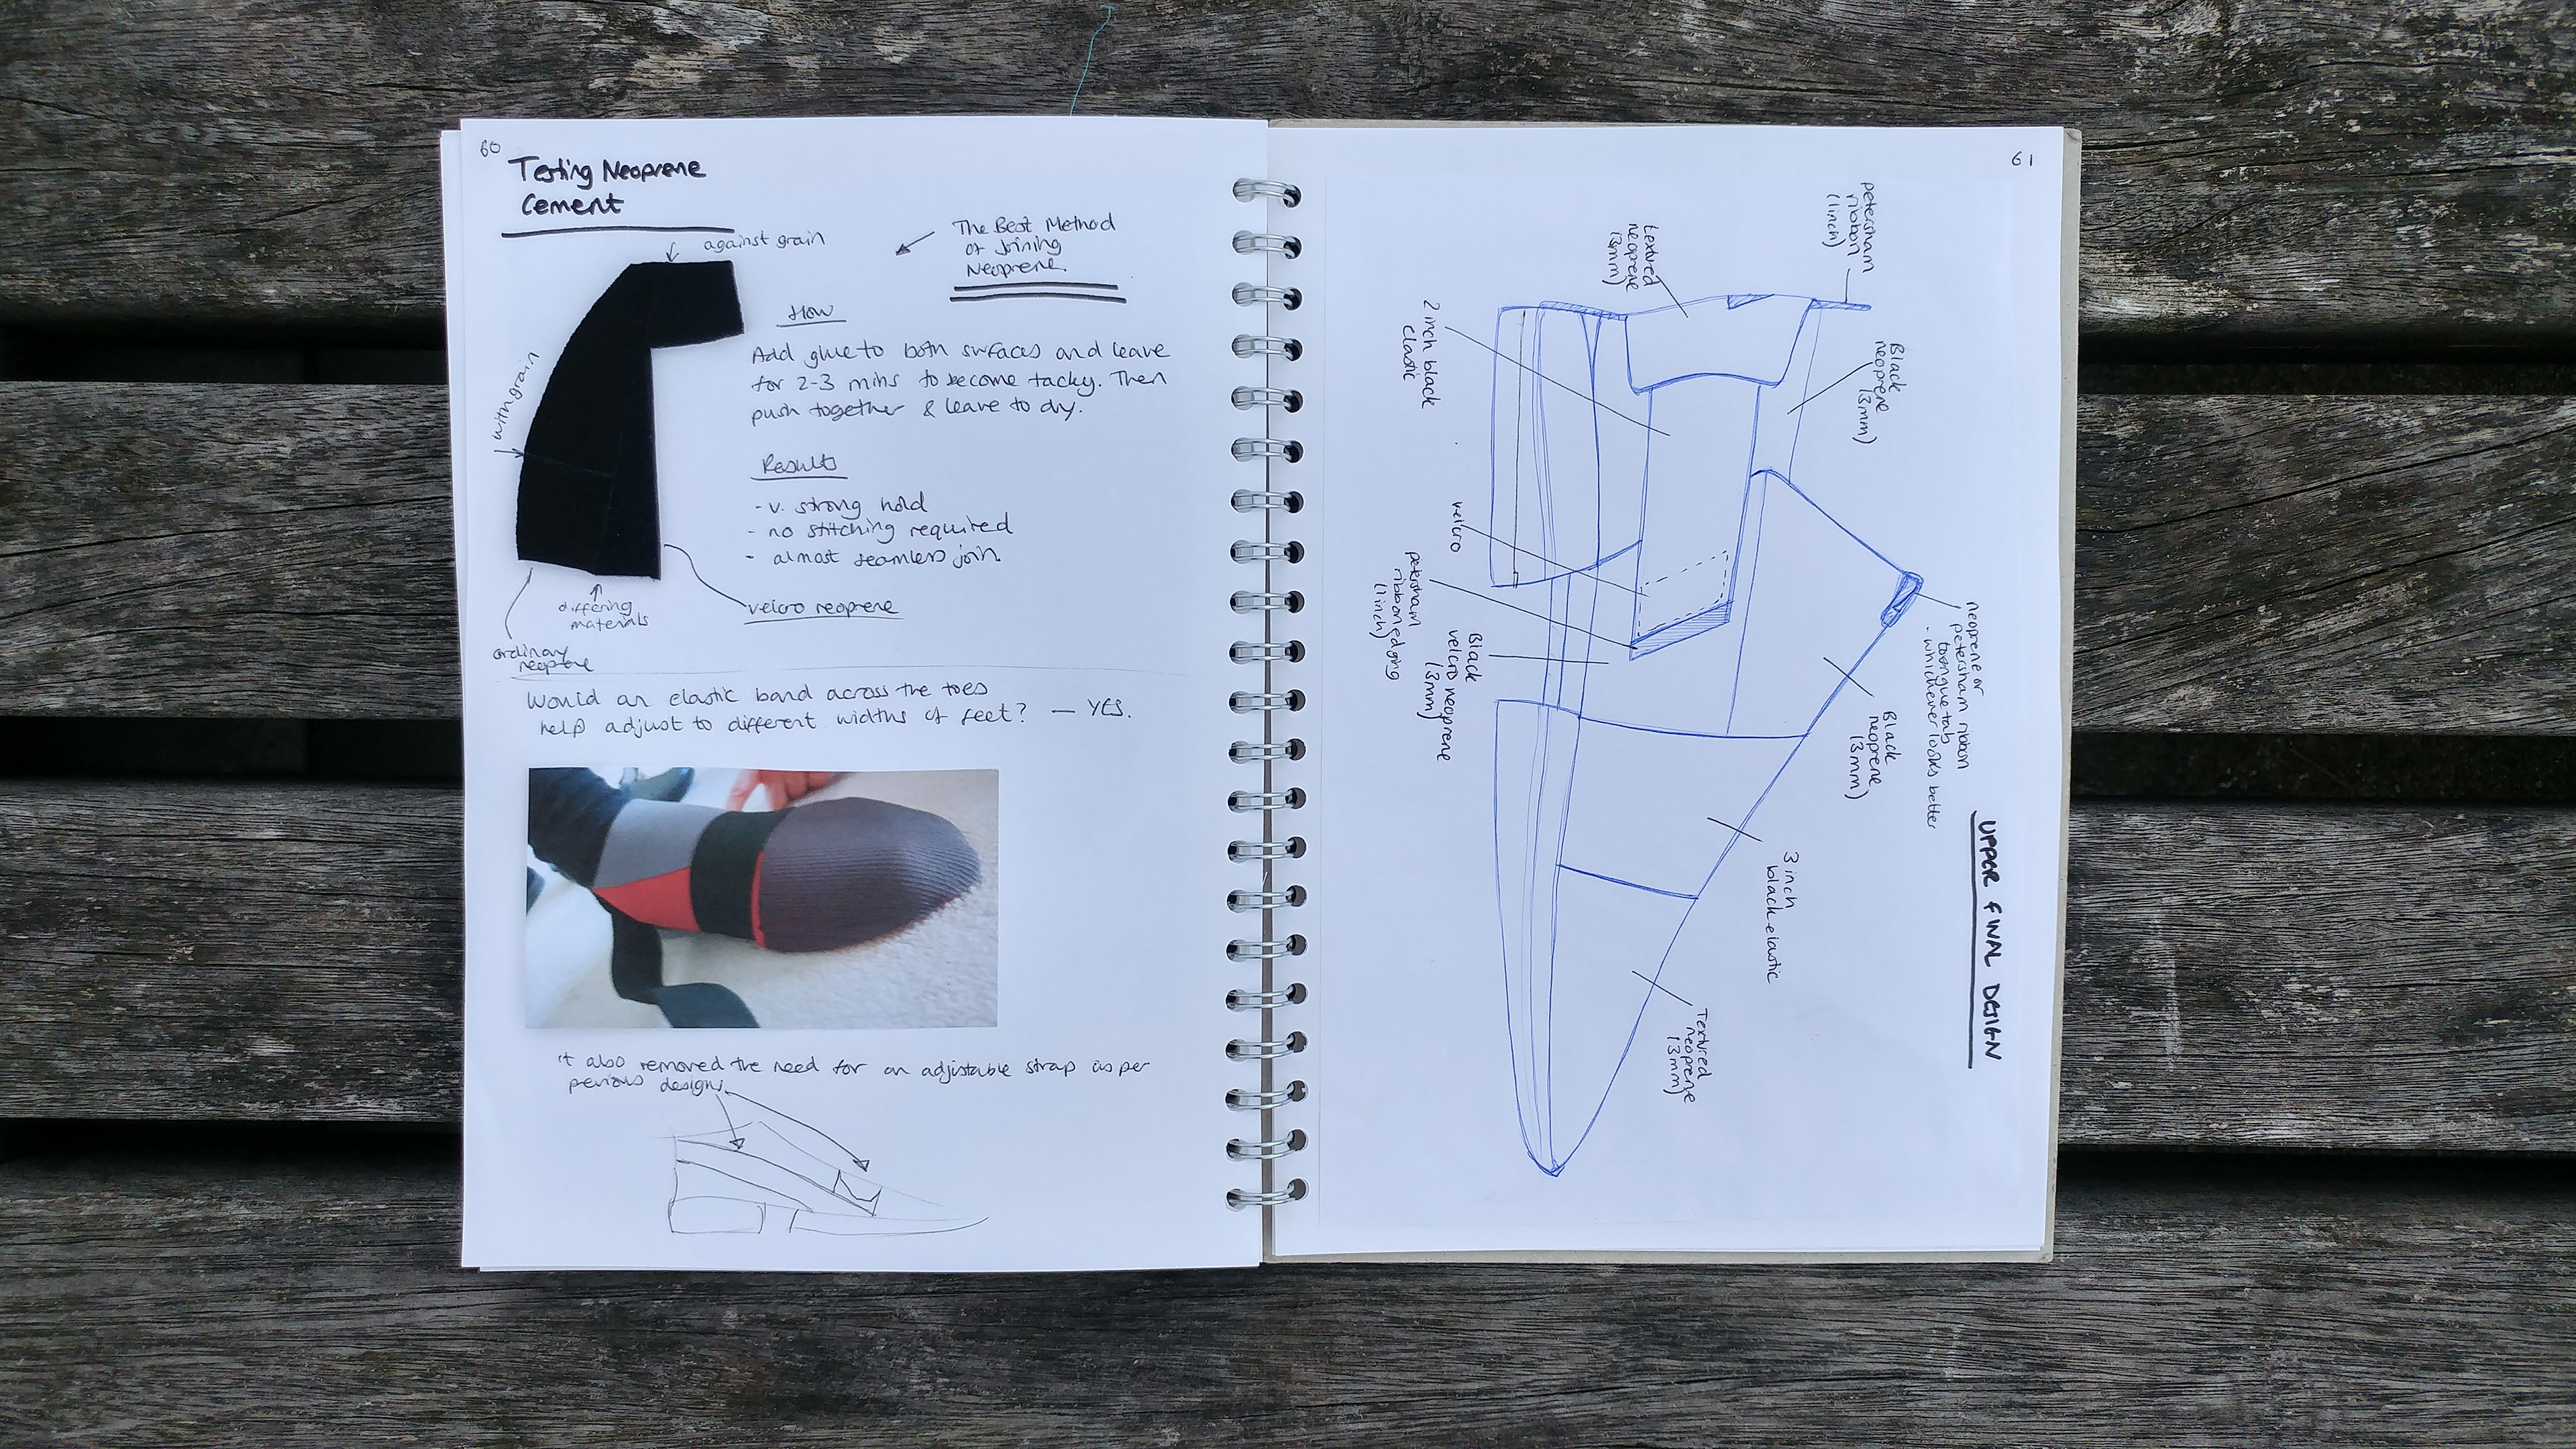 60
Testing Neoprene
Cement
against grain
The Best Method
of Joining
Neoprene.
How
Add glue to both surfaces and leave
for 2-3 mins to become tacky. Then
push together & leave to dry.
with grain
Results
- v. strong hold
- no stitching required
- almost seamless join.
velcro neoprene
differing
materials
ordinary
neoprene
Would an elastic band across the toes
help adjust to different widths of feet? — YES.
it also removed the need for an adjustable strap as per
pervious designs
61
UPPER FINAL DESIGN
petersham
ribbon
(1inch)
textured
neoprene
(3mm)
Black
neoprene
(3mm)
2 inch black
elastic
velcro
petersham
ribbon edging
(1inch)
Black
velcro neoprene
(3mm)
neoprene or
petersham ribbon
tongue tab
- whichever looks better
Black
neoprene
(3mm)
3 inch
black elastic
Textured
neoprene
(3mm)